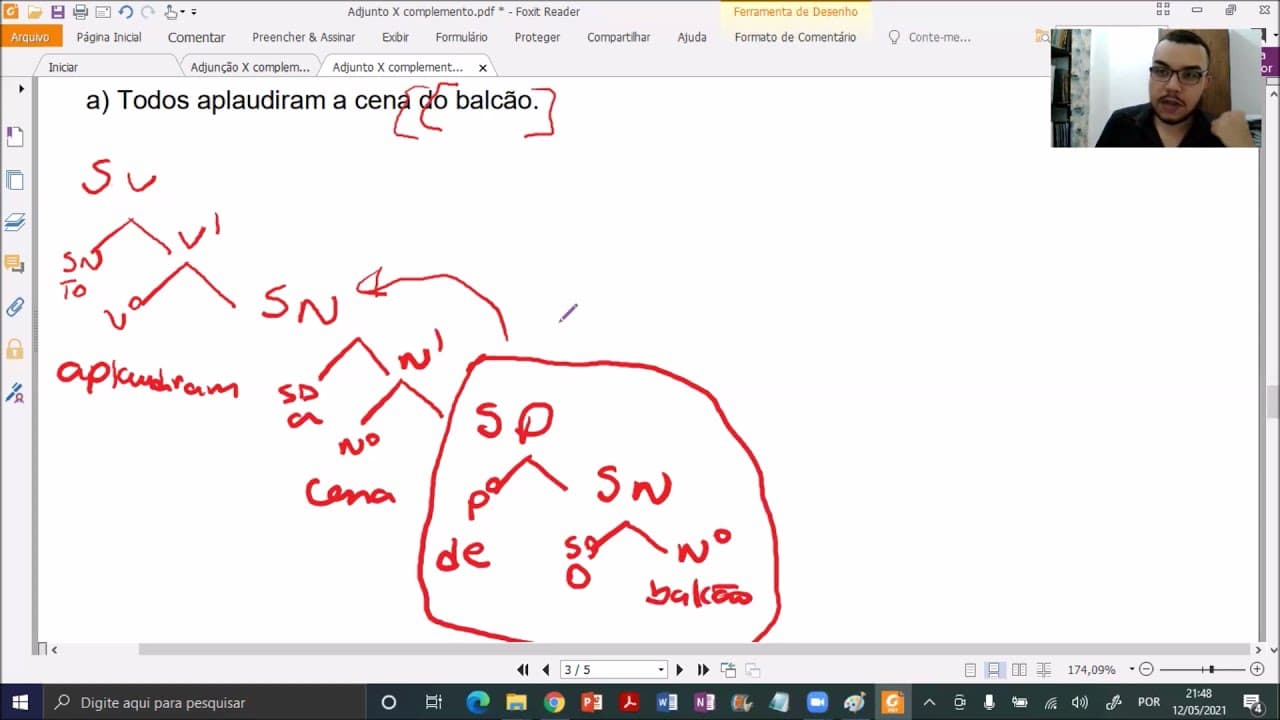 Adjunto X complemento.pdf * - Foxit Reader
Ferramenta de Desenho
Arquivo Página Inicial Comentar Preencher & Assinar Exibir Formulário Proteger Compartilhar Ajuda Formato de Comentário Conte-me...
Iniciar Adjunção X complem... Adjunto X complement...
a) Todos aplaudiram a cena do balcão.
SV
SN V'
TO
V° SN
aplaudiram
SD N'
a
N° SP
cena
P° SN
de
SD N°
O
balcão
3 / 5
174,09%
Digite aqui para pesquisar
POR
21:48
12/05/2021
4